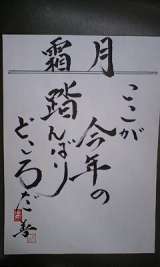 霜月
ここが
今年の
踏んばり
どころだ
善